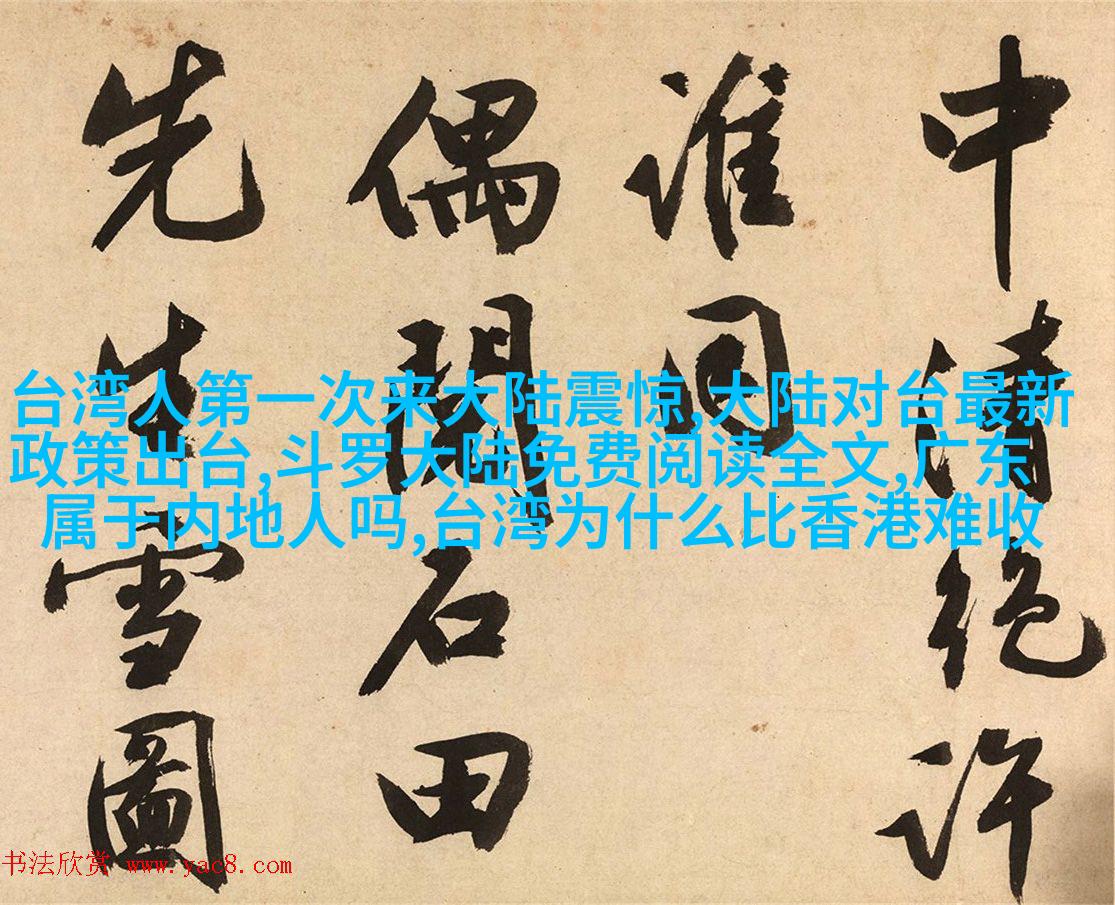 中清絶許
誰同
偶閲石田
先生雪圖
台湾人第一次来大陆震惊,大陆对台最新
政策出台,斗罗大陆免费阅读全文,广东
属于内地人吗,台湾为什么比香港难收
书法欣赏 www.yac8.com